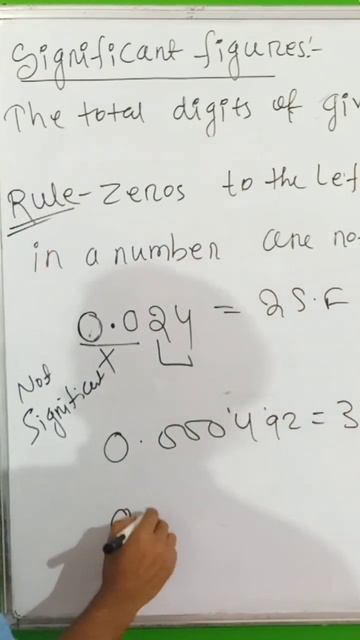 Significant figures:-
The total digits of giv
Rule- zeros to the Lef
in a number are no
0.024 = 2 S.F
Not
Significant
0.000492 = 3
0